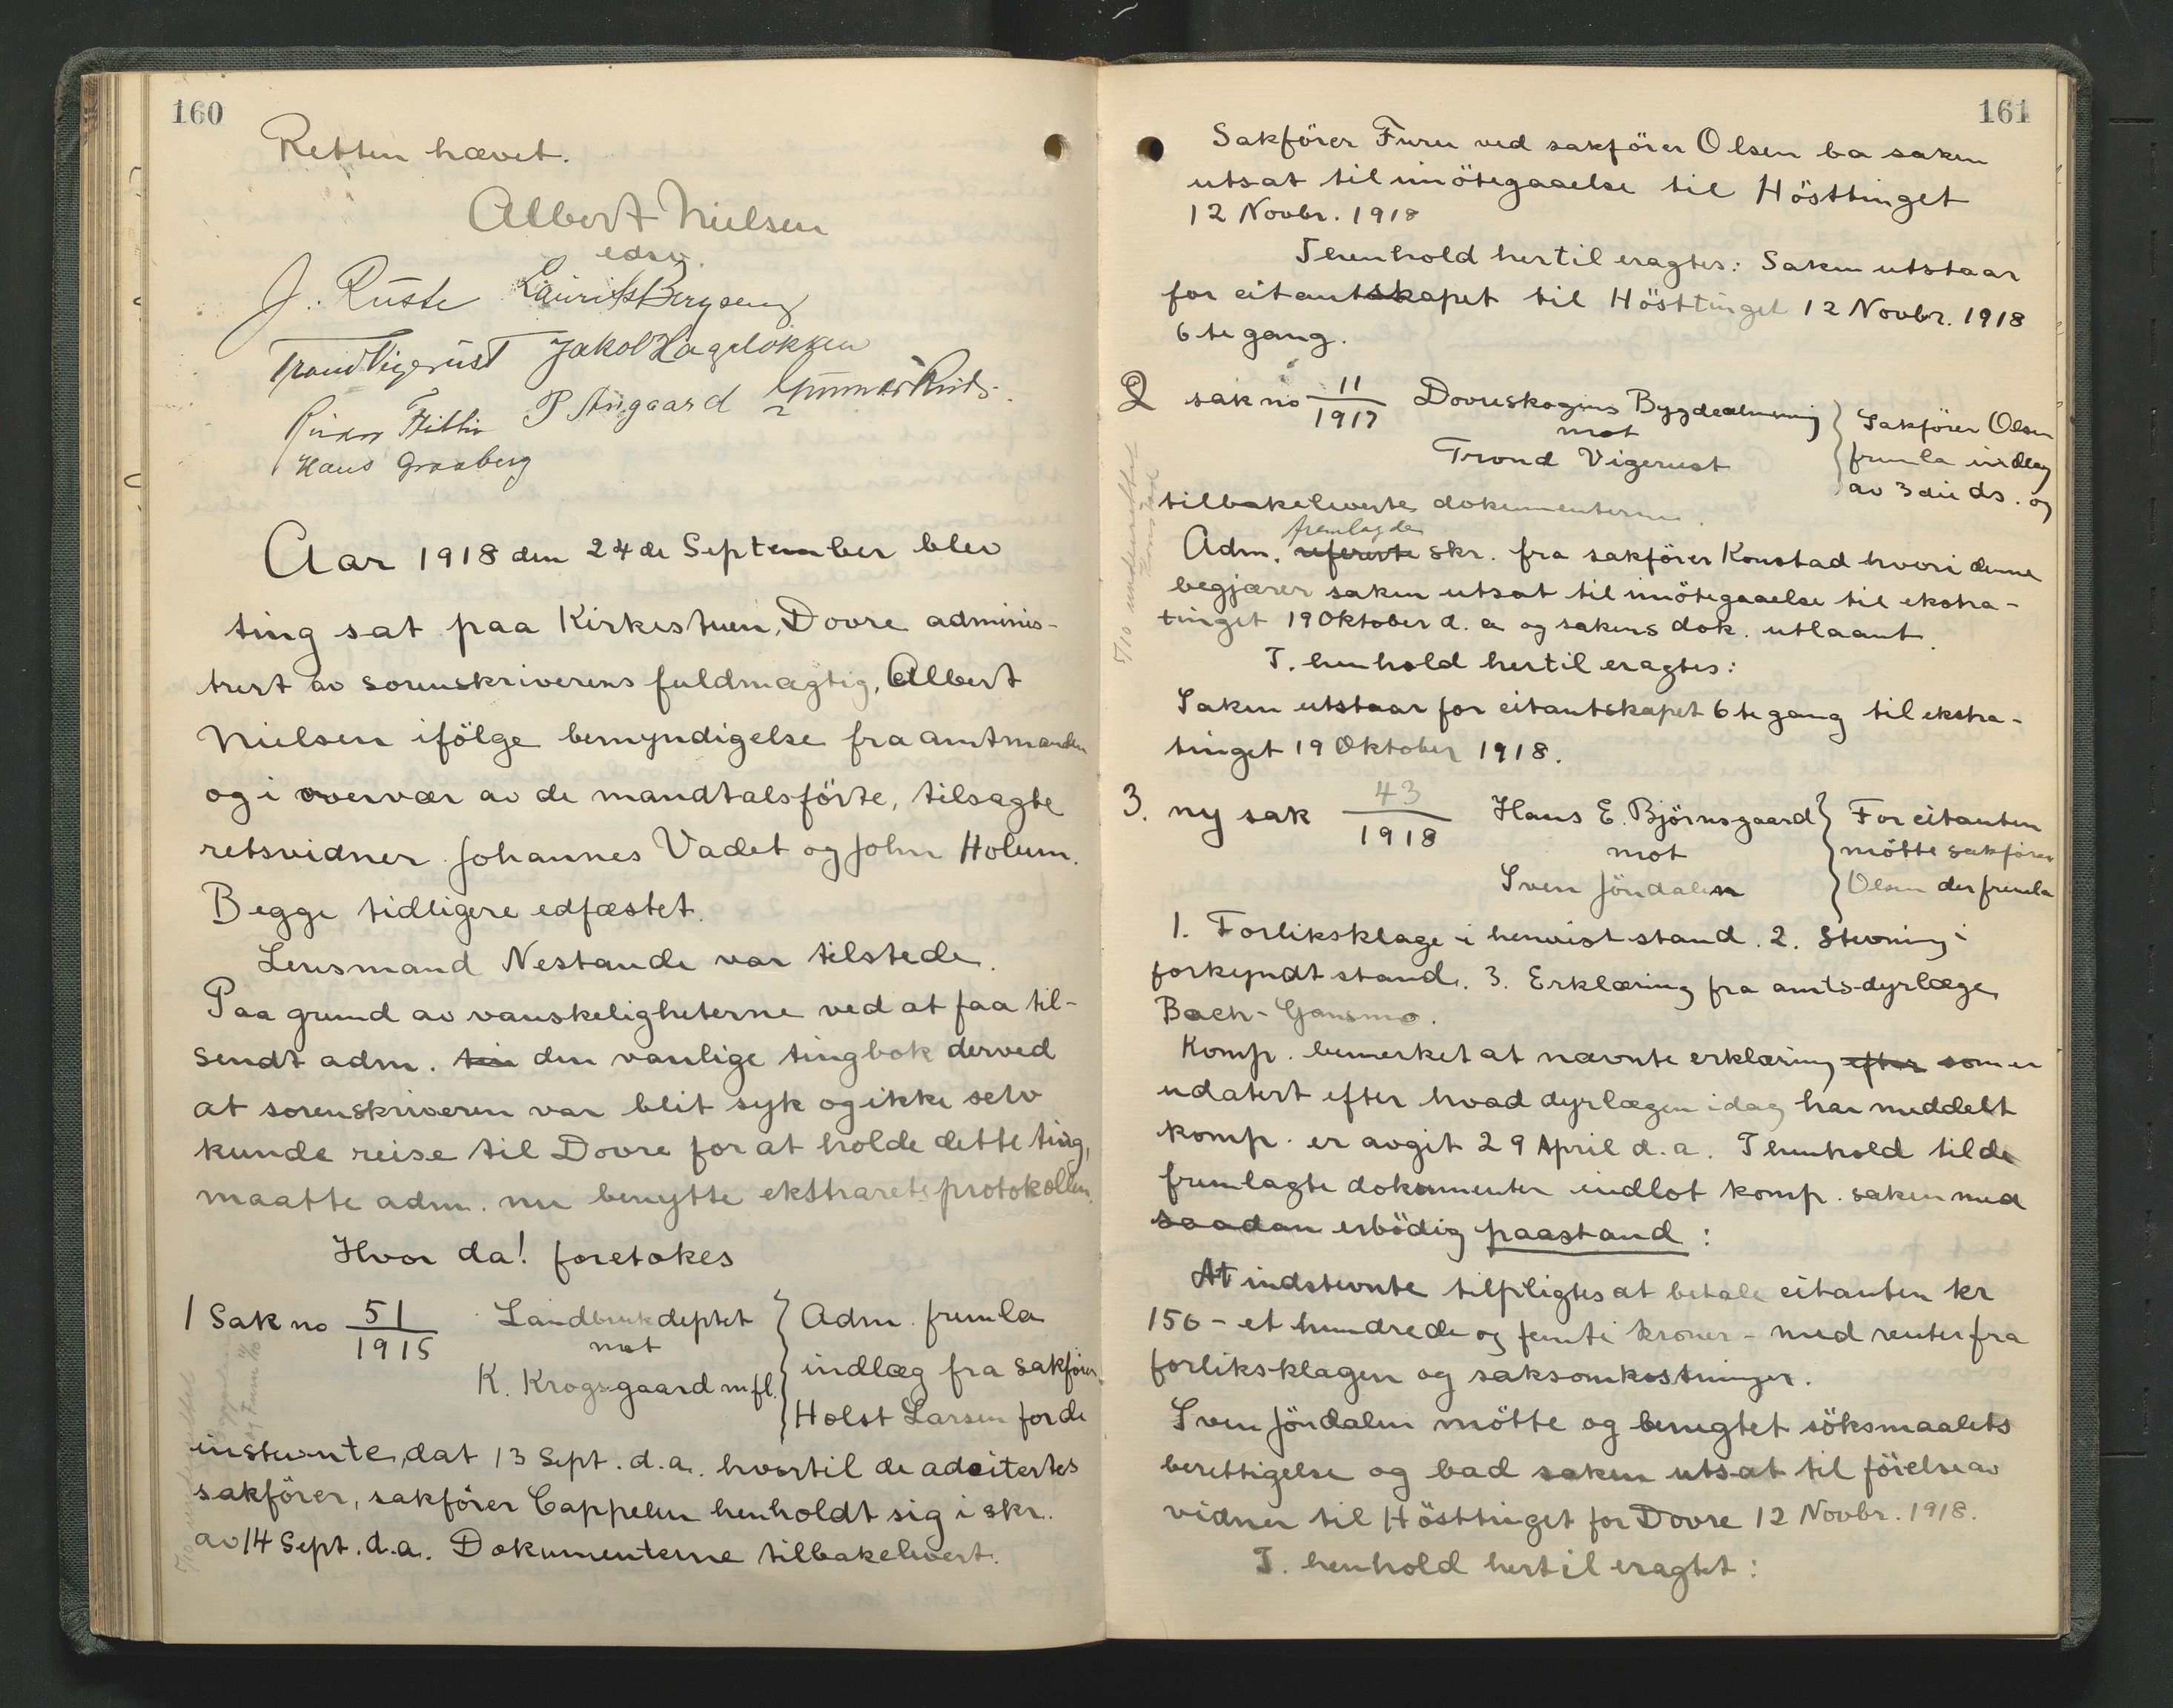 160
Retten hævet.
Albert Nielsen
edsv.
J. Ruste Laurits Bergseng
Trond Vigerust Jakob Hageløkken
P Angaard Gunnar
Hans Graaberg
Aar 1918 den 24de September blev
ting sat paa Kirkestuen, Dovre adminis-
trert av sorenskriverens fuldmægtig, Albert
Nielsen ifölge bemyndigelse fra amtmanden
og i overvær av de mandtalsförte, tilsagte
retsvidner Johannes Vadet og John Holum.
Begge tidligere edfæstet.
Lensmand Nestande var tilstede.
Paa grund av vanskeligheterne ved at faa til-
sendt adm. den vanlige tingbok derved
at sorenskriveren var blit syk og ikke selv
kunde reise til Dovre for at holde dette ting,
maatte adm. nu benytte ekstraretsprotokollen.
Hvor da! foretokes
1 Sak no 51/1915 Landbruksdeptet mot K. Krogsgaard m fl. } Adm. fremla
indlæg fra sakförer
Holst Larsen for de
instevnte, dat 13 Sept. d.a. hvortil de adciterte
sakförer, sakförer Cappelen henholdt sig i skr.
av 14 Sept. d.a. Dokumenterne tilbakelevert.
161
Sakförer Furu ved sakförer Olsen ba saken
utsat til imötegaaelse til Hösttinget
12 Novbr. 1918
I henhold hertil eragtes: Saken utstaar
for citantskapet til Hösttinget 12 Novbr. 1918
6te gang.
2 sak no 11/1917 Dovreskogens Bygdealmenning mot Trond Vigerust } Sakförer Olsen
fremla indlæg
av 3die ds. og
tilbakeleverte dokumenterne.
fremlagde
Adm. refererte skr. fra sakförer Konstad hvori denne
begjærer saken utsat til imötegaaelse til ekstra-
tinget 19 Oktober d. a og sakens dok. utlaant.
I. henhold hertil eragtes:
Saken utstaar for citantskapet 6te gang til ekstra-
tinget 19 Oktober 1918.
3. ny sak 43/1918 Hans E. Björnsgaard mot Sven Jöndalen } For citanten
mötte sakförer
Olsen der fremla
1. Forliksklage i henvist stand. 2. Stevning i
forkyndt stand. 3. Erklæring fra amtsdyrlæge
Bach-Gansmo.
Komp. bemerket at nævnte erklæring efter som er
udatert efter hvad dyrlægen idag har meddelt
komp. er avgit 29 April d.a. I henhold til de
fremlagte dokumenter indlot komp. saken med
saadan erbödig paastand:
At indstevnte tilpligtes at betale citanten kr
150 - et hundrede og femti kroner - med renter fra
forliksklagen og saksomkostninger.
Sven Jöndalen mötte og benegtet söksmaalets
berettigelse og bad saken utsat til förelse av
vidner til Hösttinget for Dovre 12 Novbr. 1918.
I. henhold hertil eragtet: